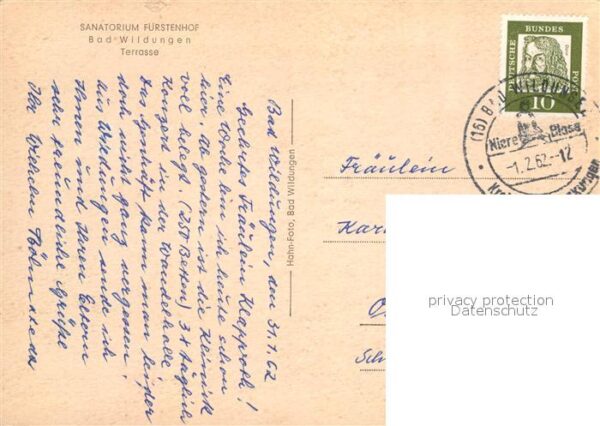 SANATORIUM FÜRSTENHOF
Bad Wildungen
Terrasse
Bad Wildungen, am 31.1.62
Geehrtes Fräulein Klapproth!
Eine Woche bin ich heute schon
hier. Ab gestern ist die Klinik
voll belegt. (250 Betten) 3x täglich
Konzert in der Wandelhalle.
Das Geschäft kann man leider
noch nicht ganz vergessen.
Aus Wildungen sende ich
Ihnen und Ihren Eltern
sehr freundliche Grüße
Ihr Wilhelm
Hahn-Foto, Bad Wildungen
DEUTSCHE BUNDESPOST
10
(16) BAD WILDUNGEN
Niere Blase
-1.2.62.-12
Fräulein
Kar
O
Sch
privacy protection
Datenschutz